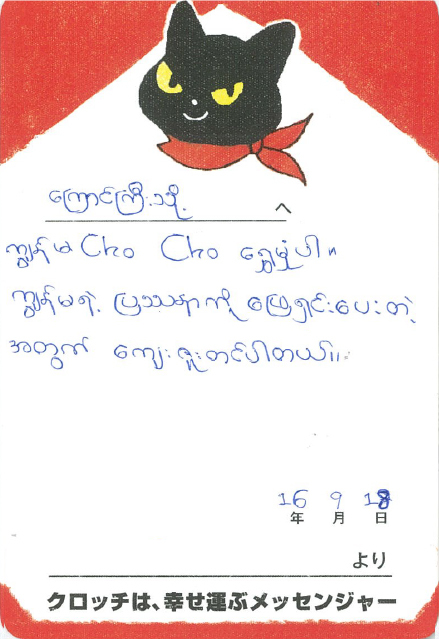 ကြောင်ကြီးသို့ へ
ကျွန်မ Cho Cho ရွှေမှုံပါ။
ကျွန်မရဲ့ ပြဿနာကို ဖြေရှင်းပေးတဲ့
အတွက် ကျေးဇူးတင်ပါတယ်။
16年 9月 18日
より
クロッチは、幸せ運ぶメッセンジャー